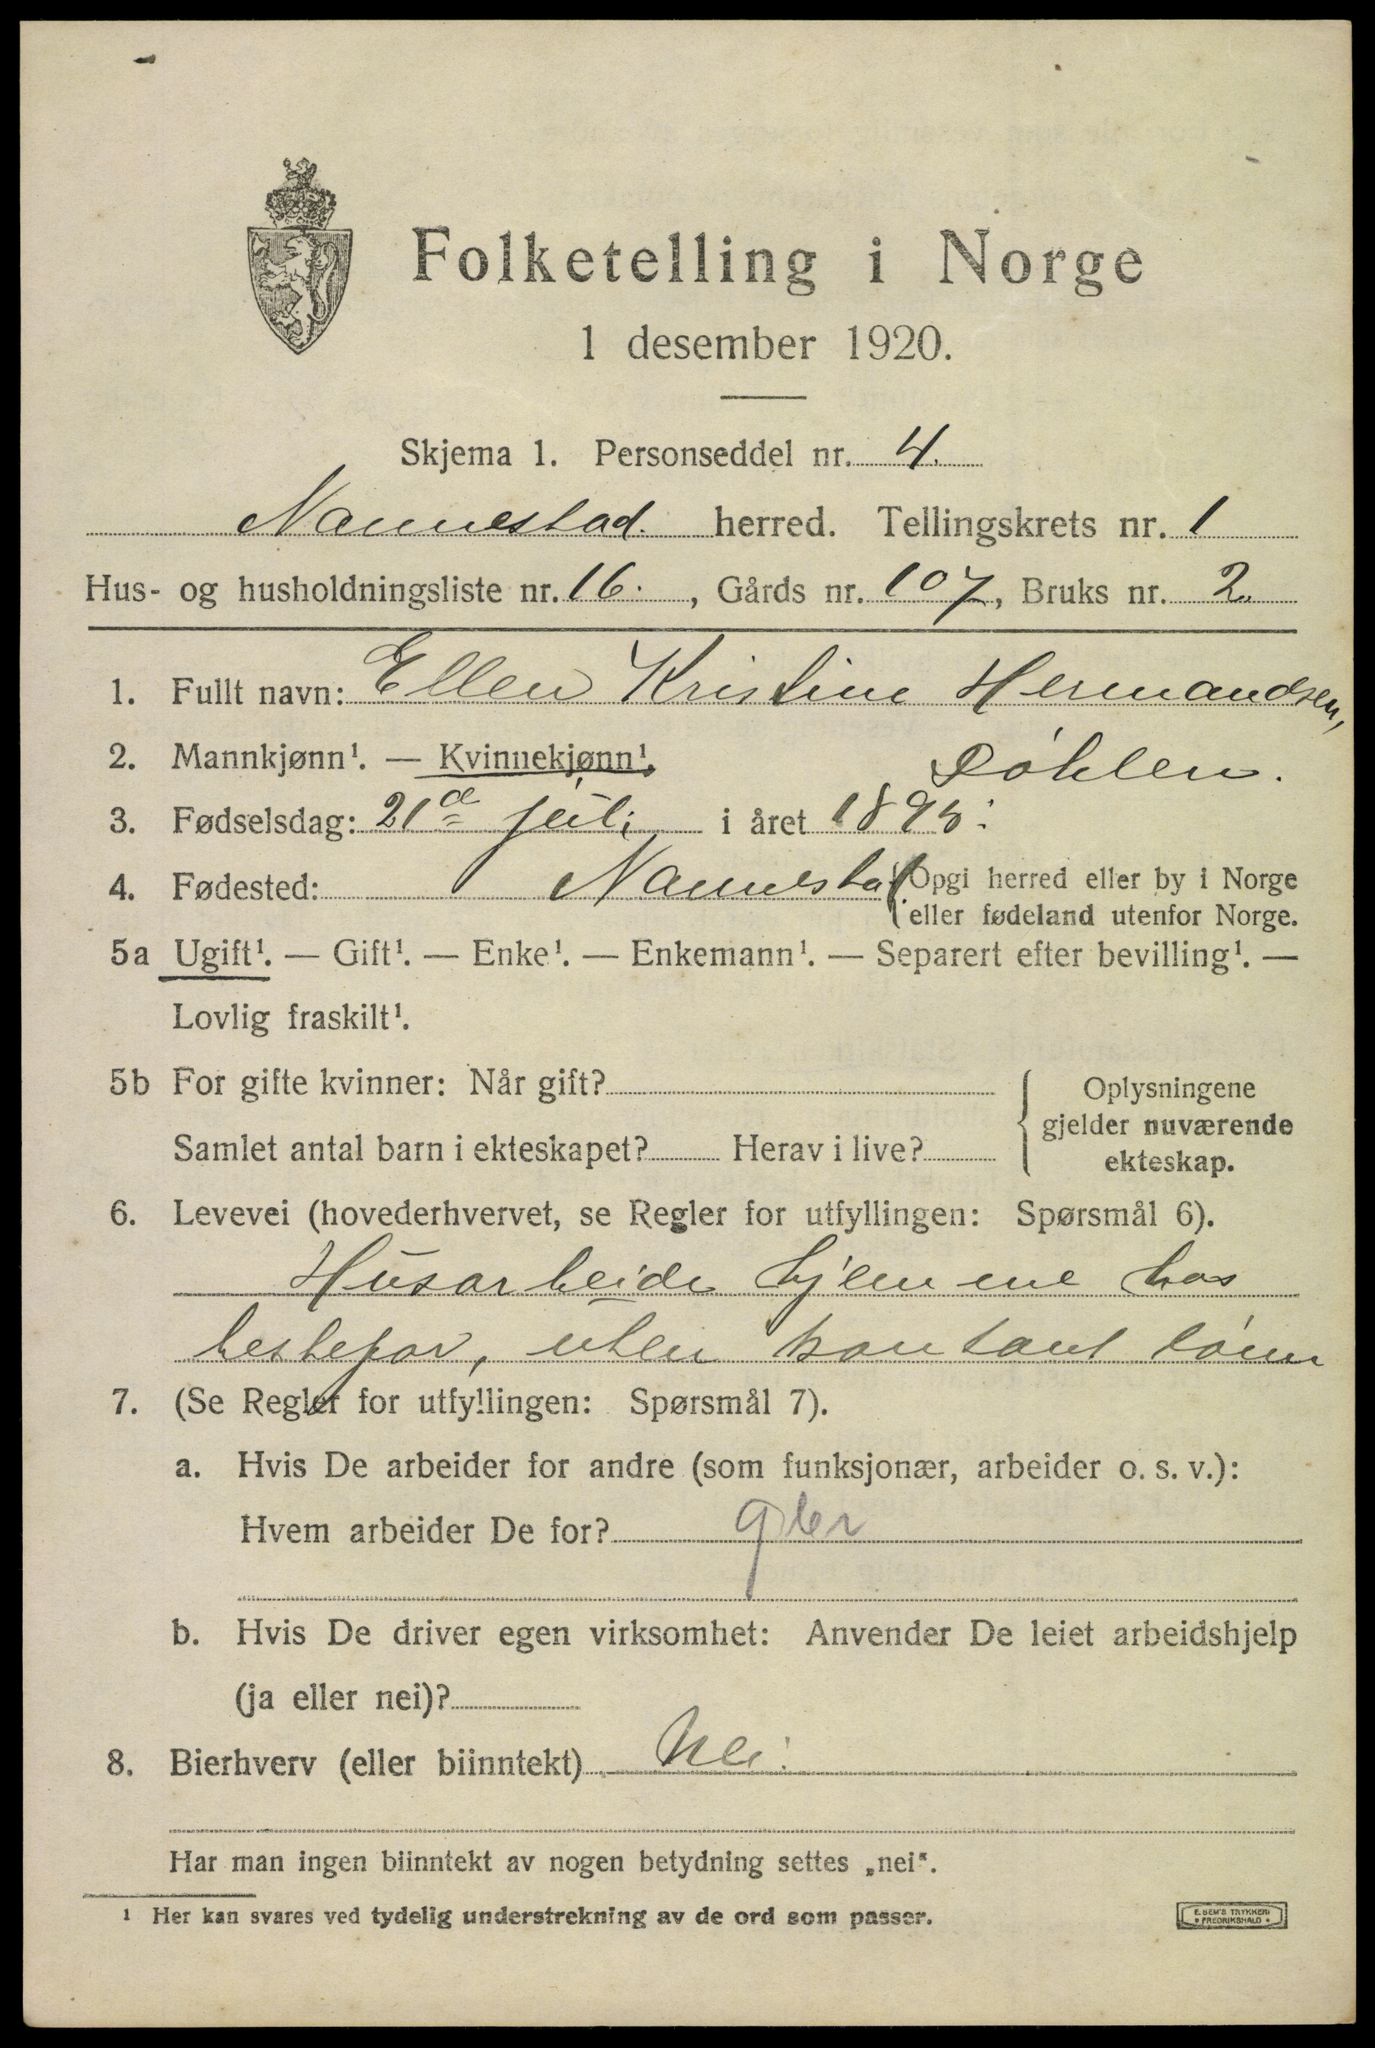 Folketelling i Norge
1 desember 1920.
Skjema 1. Personseddel nr. 4.
Nannestad. herred. Tellingskrets nr. 1
Hus- og husholdningsliste nr. 16. , Gårds nr. 107, Bruks nr. 2.
1. Fullt navn: Ellen Kristine Hermandsen,
Døhlen.
2. Mannkjønn¹. — Kvinnekjønn¹.
3. Fødselsdag: 21de juli i året
4. Fødested: Nannestad {Opgi herred eller by i Norge
eller fødeland utenfor Norge.
5a Ugift¹. — Gift¹. — Enke¹. — Enkemann¹. — Separert efter bevilling¹. —
Lovlig fraskilt¹.
5b For gifte kvinner: Når gift?
Samlet antal barn i ekteskapet? Herav i live?
Oplysningene
gjelder nuværende
ekteskap.
6. Levevei (hovederhvervet, se Regler for utfyllingen: Spørsmål 6).
Husarbeide hjemme hos
bestefar, uten kontant lønn
7. (Se Regler for utfyllingen: Spørsmål 7).
a. Hvis De arbeider for andre (som funksjonær, arbeider o. s. v.):
Hvem arbeider De for?
b. Hvis De driver egen virksomhet: Anvender De leiet arbeidshjelp
(ja eller nei)?
8. Bierhverv (eller biinntekt) Nei.
Har man ingen biinntekt av nogen betydning settes „nei“.
¹ Her kan svares ved tydelig understrekning av de ord som passer.
E. SEM'S TRYKKERI
* FREDRIKSHALD *